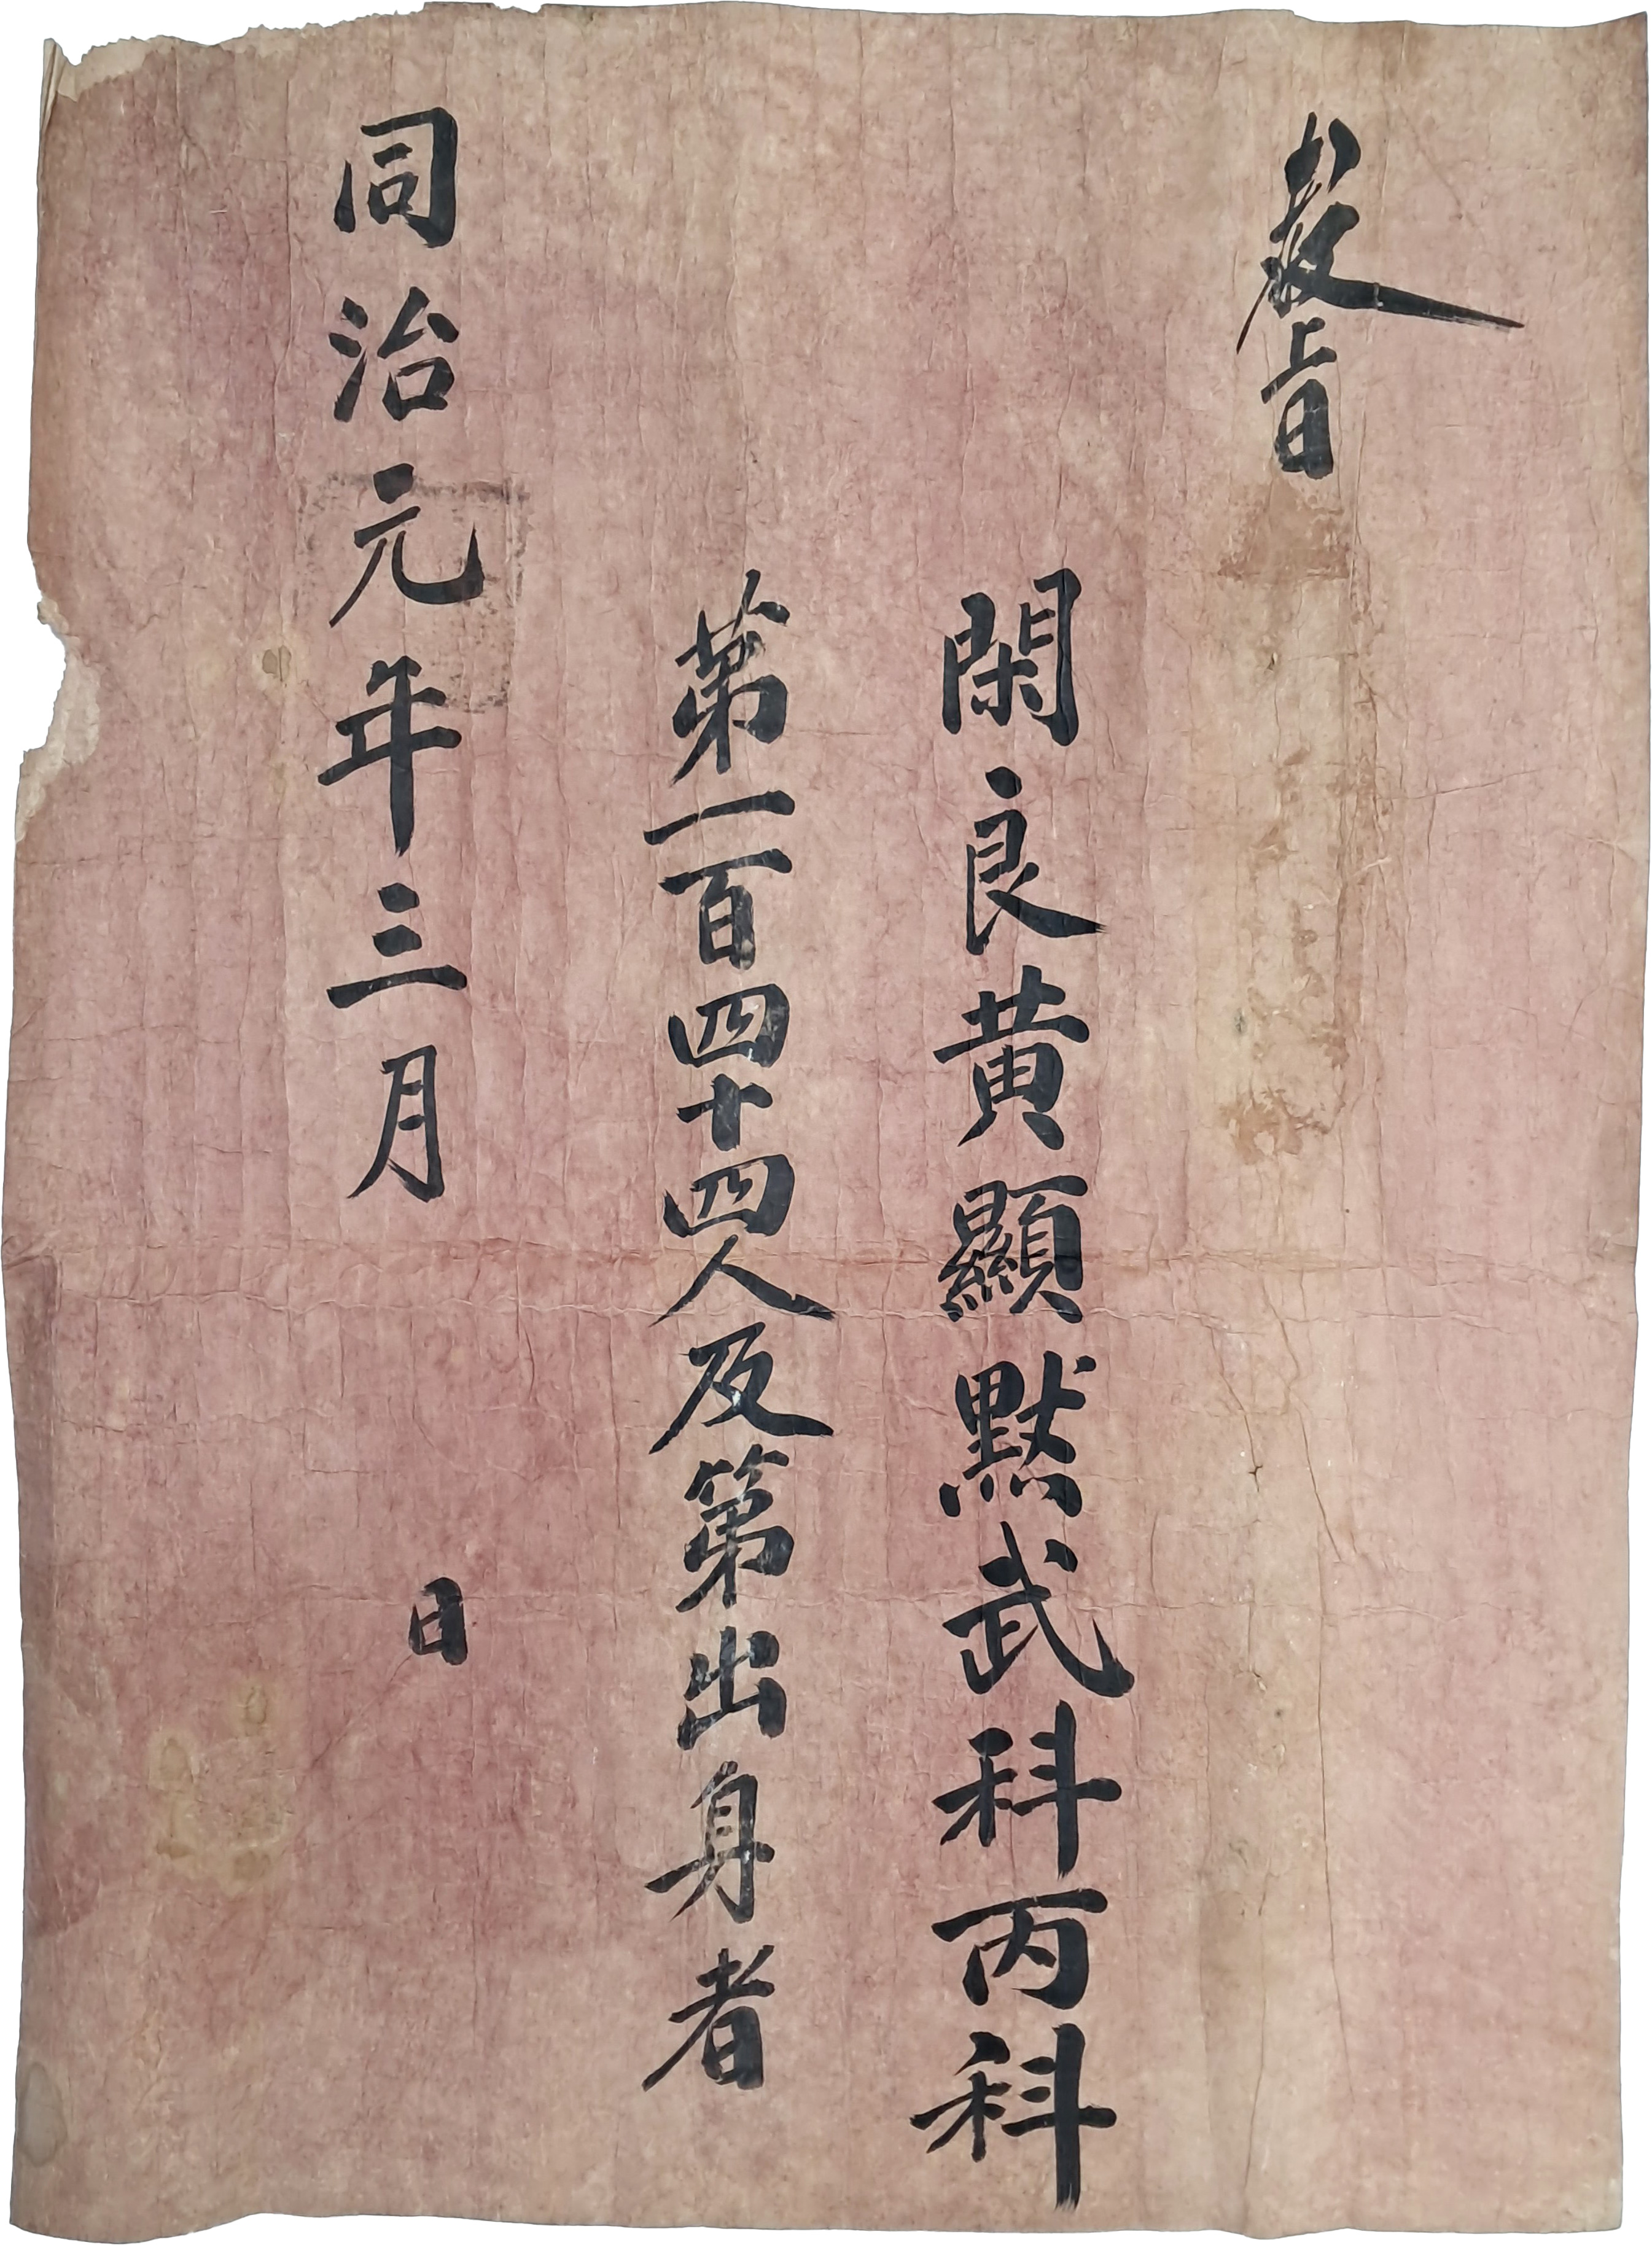 教旨
閑良黃顯默武科丙科
第一百四十四人及第出身者
同治元年三月 日